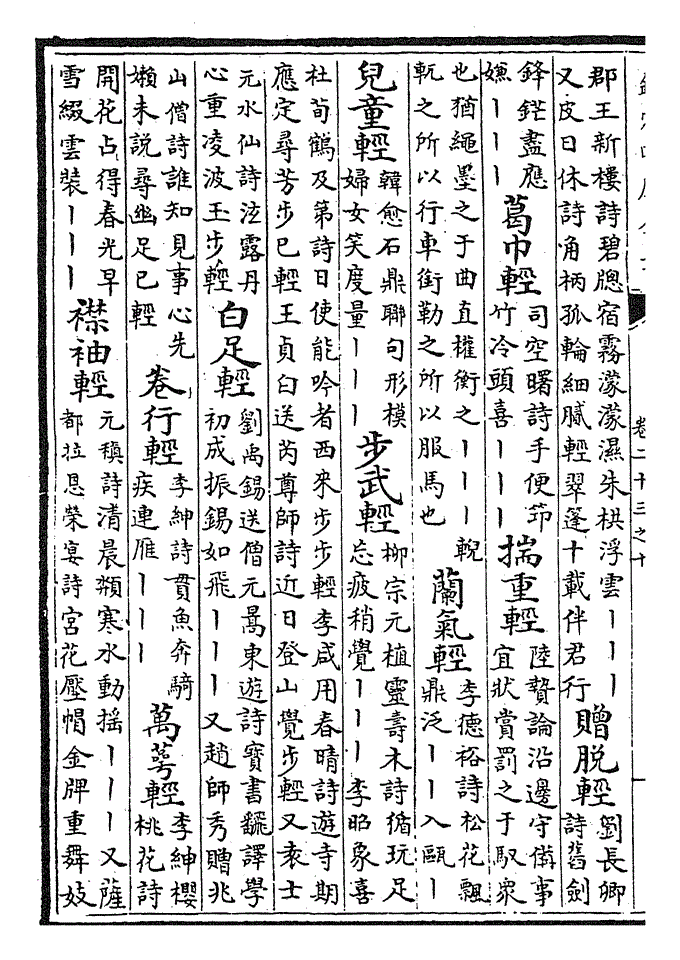 卷二十三之十
郡王新樓詩碧牕宿霧濛濛濕朱栱浮雲丨丨丨
又皮日休詩角柄孤輪細膩輕翠篷十載伴君行
贈脱輕
劉長卿
詩舊劍
鋒鋩盡應
嫌丨丨丨
葛巾輕
司空曙詩手便笻
竹冷頭喜丨丨丨
揣重輕
陸贄論沿邊守備事
宜狀賞罰之于馭衆
也猶繩墨之于曲直權衡之丨丨丨輗
軏之所以行車銜勒之所以服馬也
蘭氣輕
李德裕詩松花飄
鼎泛丨丨入甌丨
兒童輕
韓愈石鼎聯句形模
婦女笑度量丨丨丨
步武輕
柳宗元植靈壽木詩循玩足
忘疲稍覺丨丨丨李昭象喜
杜荀鶴及第詩日使能吟者西來步步輕李咸用春晴詩遊寺期
應定尋芳步已輕王貞白送芮尊師詩近日登山覺步輕又袁士
元水仙詩泣露丹
心重凌波玉步輕
白足輕
劉禹錫送僧元暠東遊詩寳書飜譯學
初成振錫如飛丨丨丨又趙師秀贈兆
山僧詩誰知見事心先
嬾未説尋幽足已輕
卷行輕
李紳詩貫魚奔騎
疾連雁丨丨丨
萬萼輕
李紳櫻
桃花詩
開花占得春光早
雪綴雲裝丨丨丨
襟袖輕
元稹詩清晨頮寒水動揺丨丨丨又薩
都拉恩榮宴詩宫花壓帽金牌重舞妓